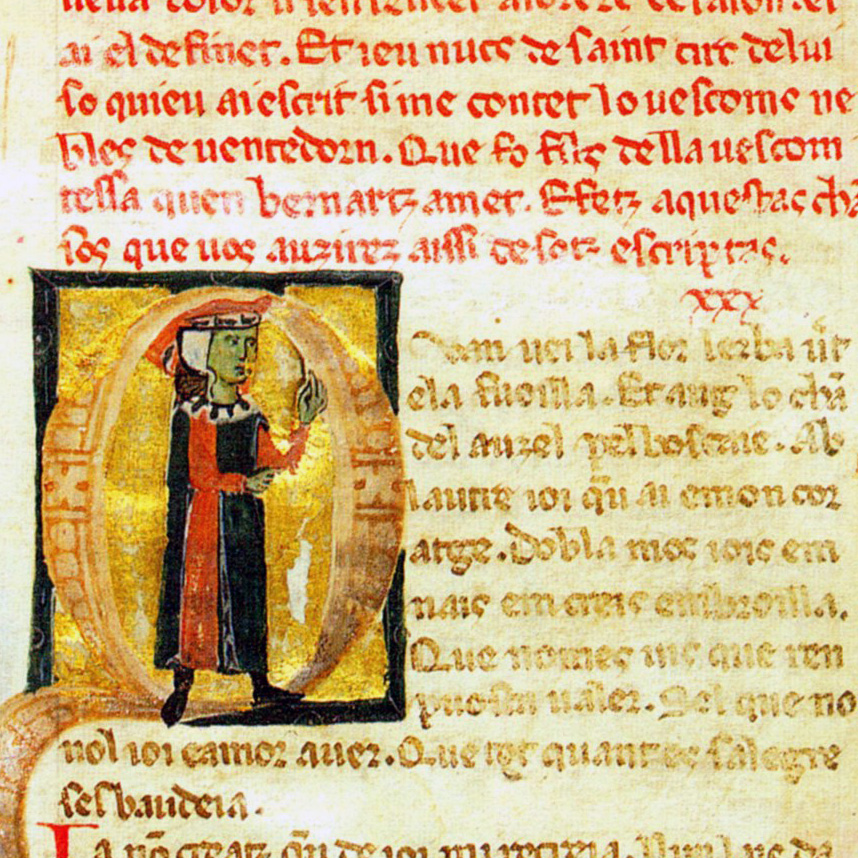 ai el definet. Et ieu nucs de saint circ delui
so quieu ai escrit si me contet lo uescoms ne
bles de uentedorn. Que fo fils della uescom
tessa quen bernartz amet. E fetz aquestas chā
sos que uos auzirez aissi desotz escriptas.
xxx
Qvan uei la flor lerba u̅t
ela fuoilla. Et aug lo chā
del auzel pel boscaie. Ab
lautre ioi q̄u ai emon cor
atge. Dobla mos iois em
nais em creis embroilla.
Que nomes uis que ren
puosca ualer. Sel que no
uol ioi eamor auer. Que tot quant es salegre
sesbaudeia.